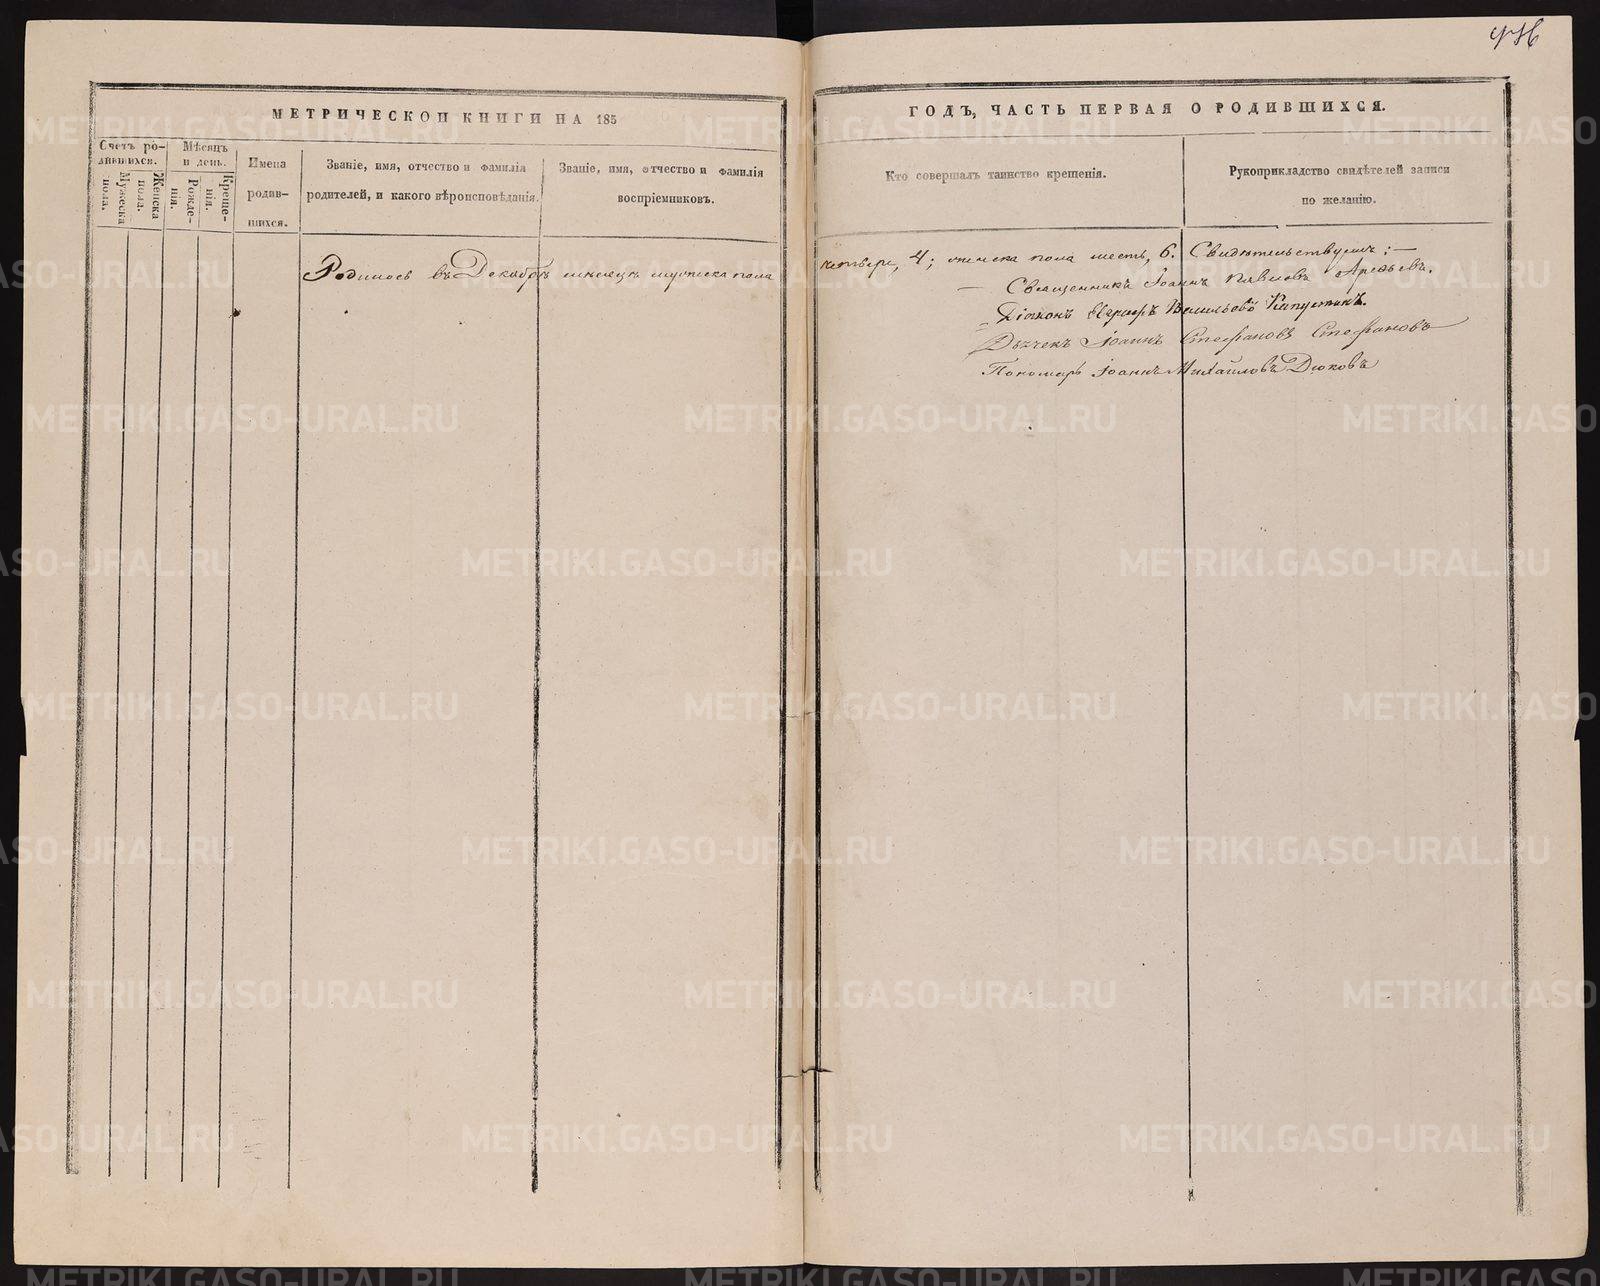 МЕТРИЧЕСКОЙ КНИГИ НА 185
Счетъ ро-
дившихся.
Мужеска
пола.
Женска
пола.
Мѣсяцъ
и день.
Рожде-
нія.
Креще-
нія.
Имена
родив-
шихся.
Званіе, имя, отчество и фамилія
родителей, и какого вѣроисповѣданія.
Званіе, имя, отчество и фамилія
воспріемниковъ.
Родилось въ Декабрѣ мѣсяцѣ мужеска пола
ГОДЪ, ЧАСТЬ ПЕРВАЯ О РОДИВШИХСЯ.
Кто совершалъ таинство крещенія.
Рукоприкладство свидѣтелей записи
по желанію.
четверо, 4; женска пола шесть, 6. Свидѣтельствуемъ: —
— Священникъ Іоаннъ Павловъ
Діаконъ Евграфъ Васильевъ Капустинъ.
Дьячекъ Іоаннъ Стефановъ Стефановъ
Пономарь Іоаннъ Михайловъ Дюковъ
METRIKI.GASO-URAL.RU